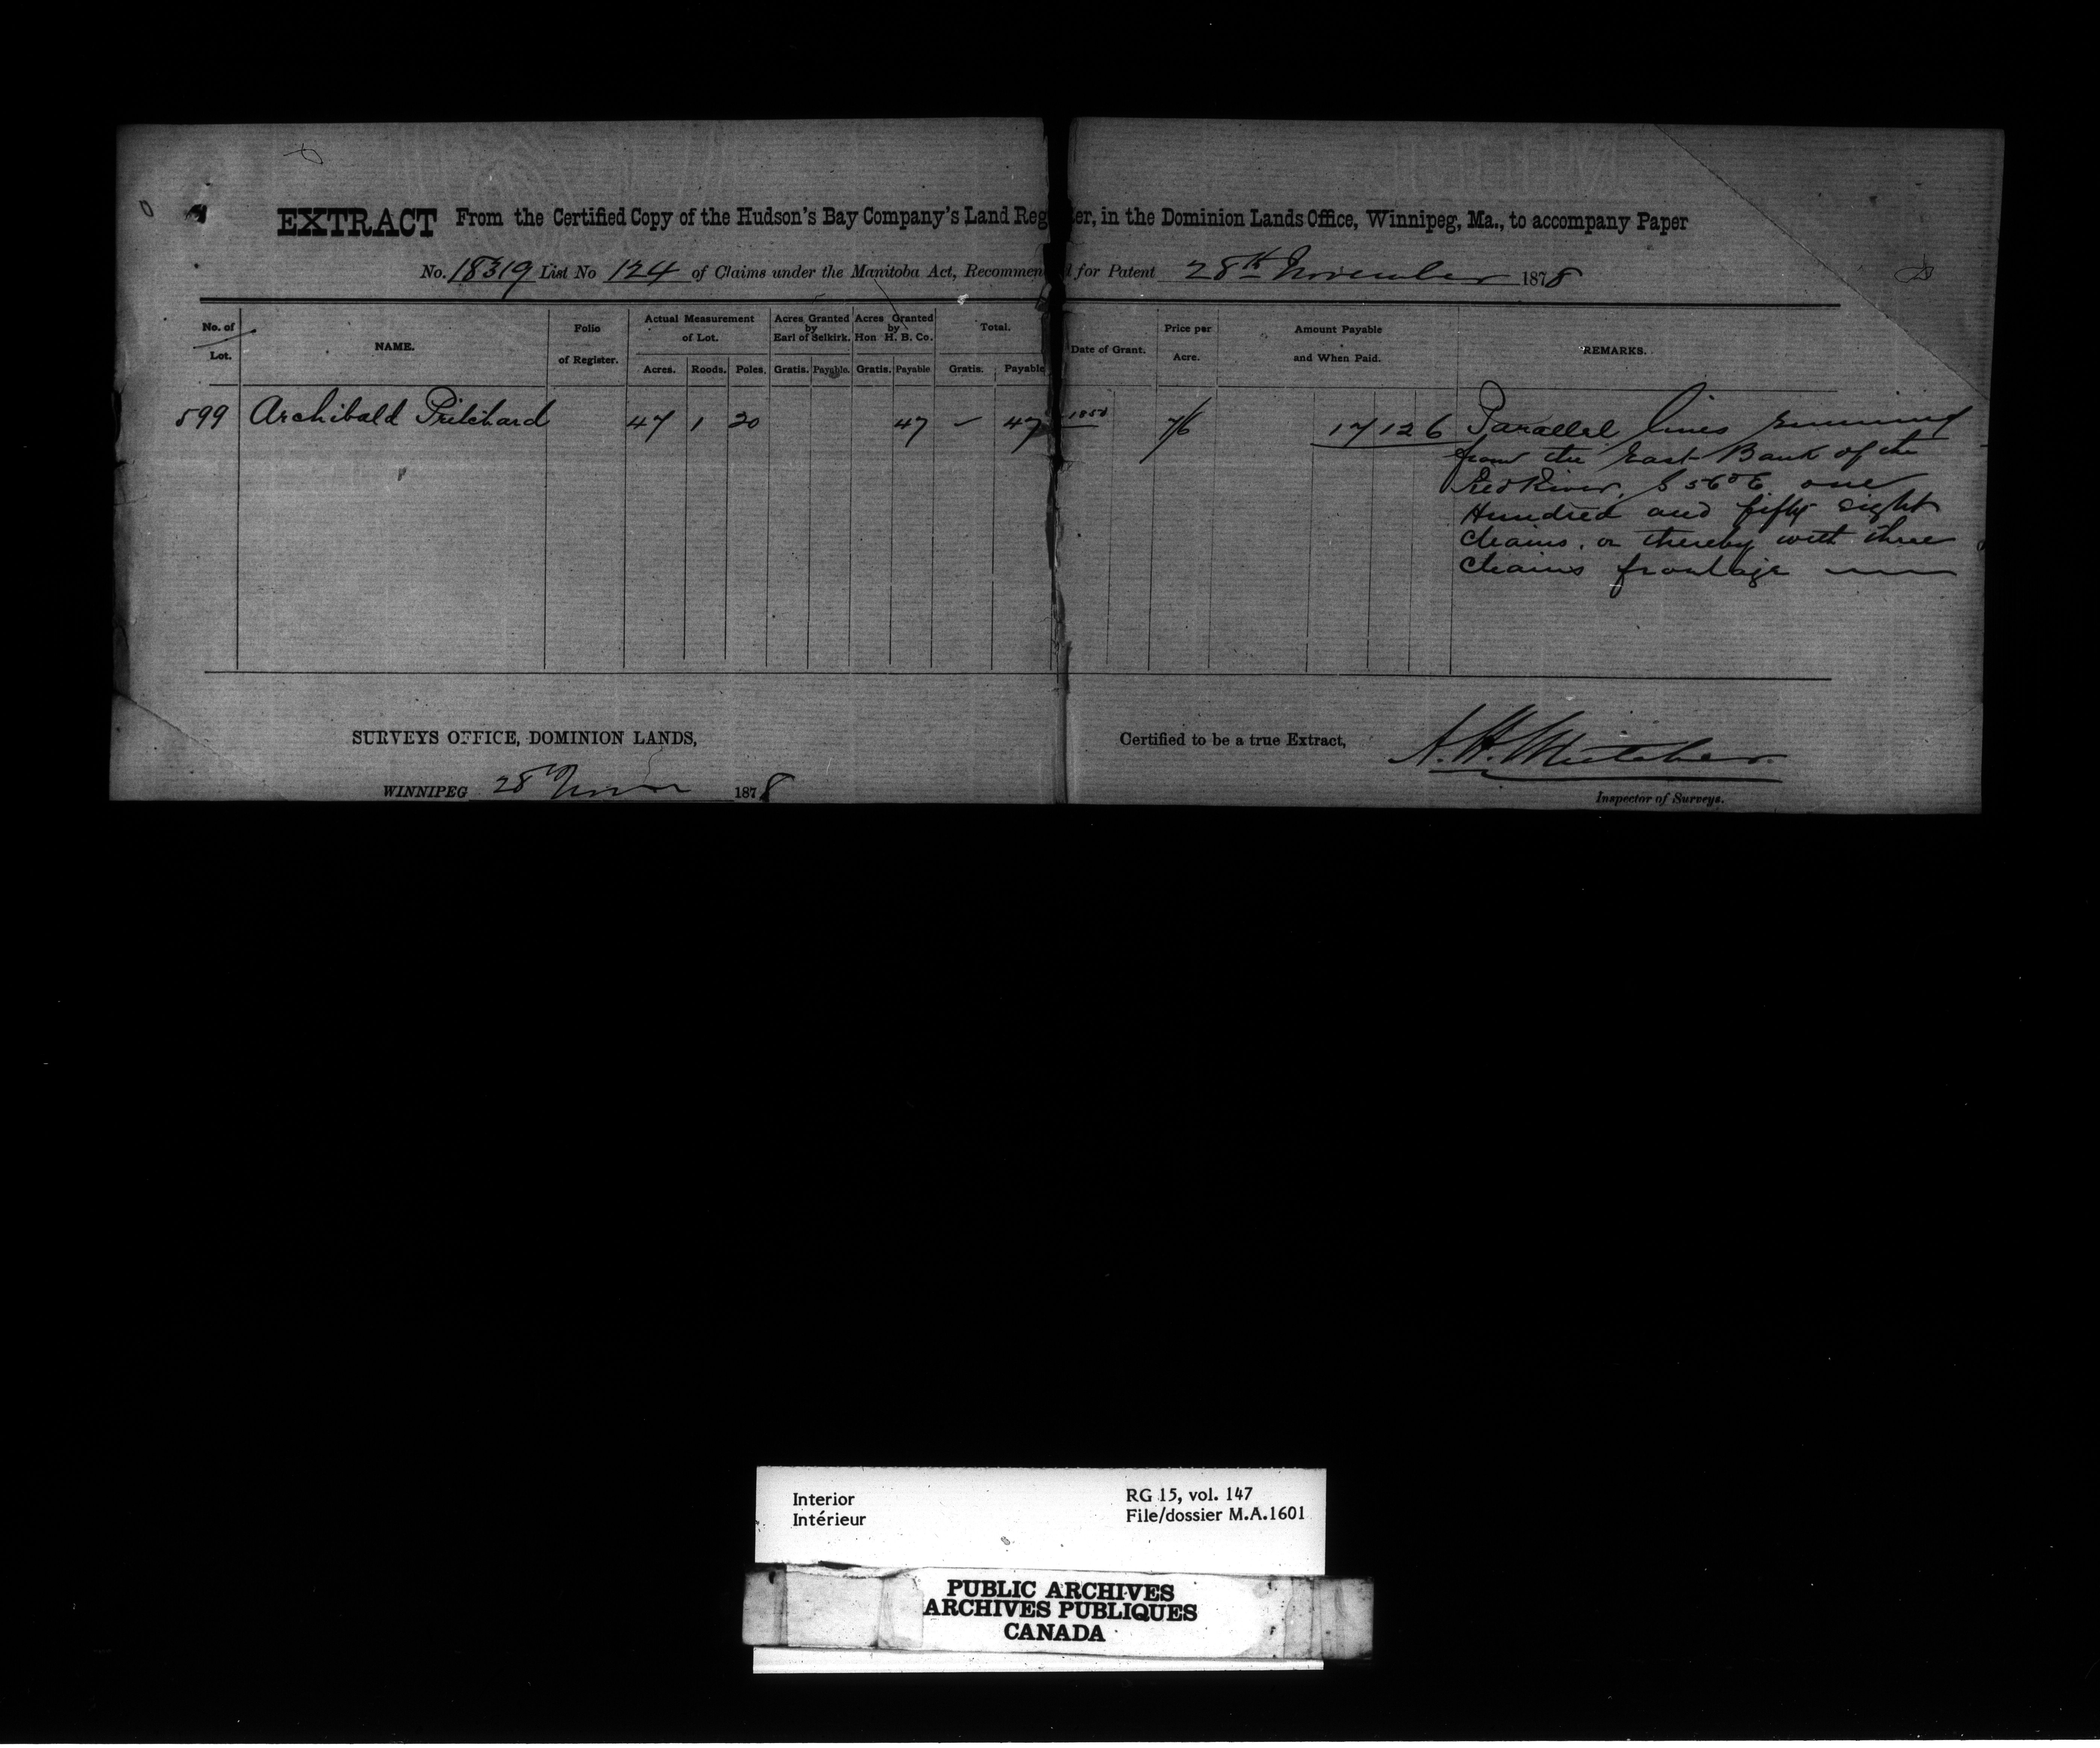 EXTRACT From the Certified Copy of the Hudson's Bay Company's Land Reg ter, in the Dominion Lands Office, Winnipeg, Ma., to accompany Paper
No. 18319 List No 124 of Claims under the Manitoba Act, Recommen d for Patent 28th November 1878
No. of Lot. NAME. Folio of Register. Actual Measurement of Lot. Acres Granted by Earl of Selkirk. Acres Granted by Hon H. B. Co. Total. Date of Grant. Price per Acre. Amount Payable and When Paid. REMARKS.
Acres. Roods. Poles. Gratis. Payable. Gratis. Payable Gratis. Payable
599 Archibald Pritchard 47 1 20 47 – 47 7/6 17 12 6 Parallel lines running
from the East Bank of the
Red River, S 56° E one
Hundred and fifty eight
chains, or thereby with three
chains frontage
SURVEYS OFFICE, DOMINION LANDS,
Certified to be a true Extract,
WINNIPEG 28 1878
Inspector of Surveys.
Interior
Intérieur
RG 15, vol. 147
File/dossier M.A.1601
PUBLIC ARCHIVES
ARCHIVES PUBLIQUES
CANADA